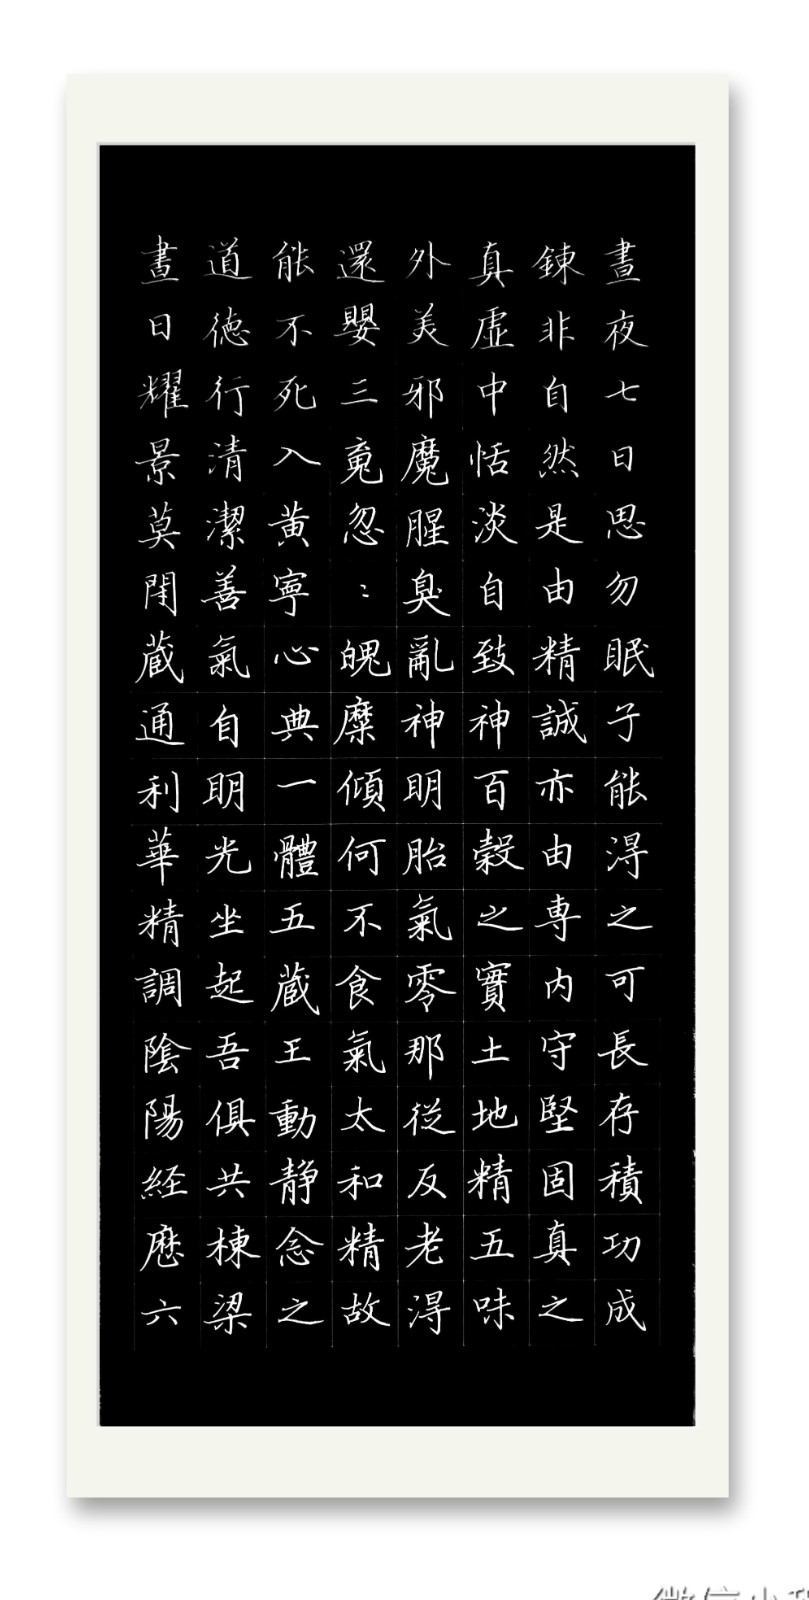 晝夜七日思勿眠子能淂之可長存積功成
鍊非自然是由精誠亦由専内守堅固真之
真虛中恬淡自致神百穀之實土地精五味
外美邪魔腥臭亂神明胎氣零那從反老淂
還嬰三䰟忽〻魄糜傾何不食氣太和精故
能不死入黃寧心典一體五蔵王動静念之
道徳行清潔善氣自明光坐起吾俱共棟梁
晝日耀景莫閇蔵通利華精調陰陽経歴六